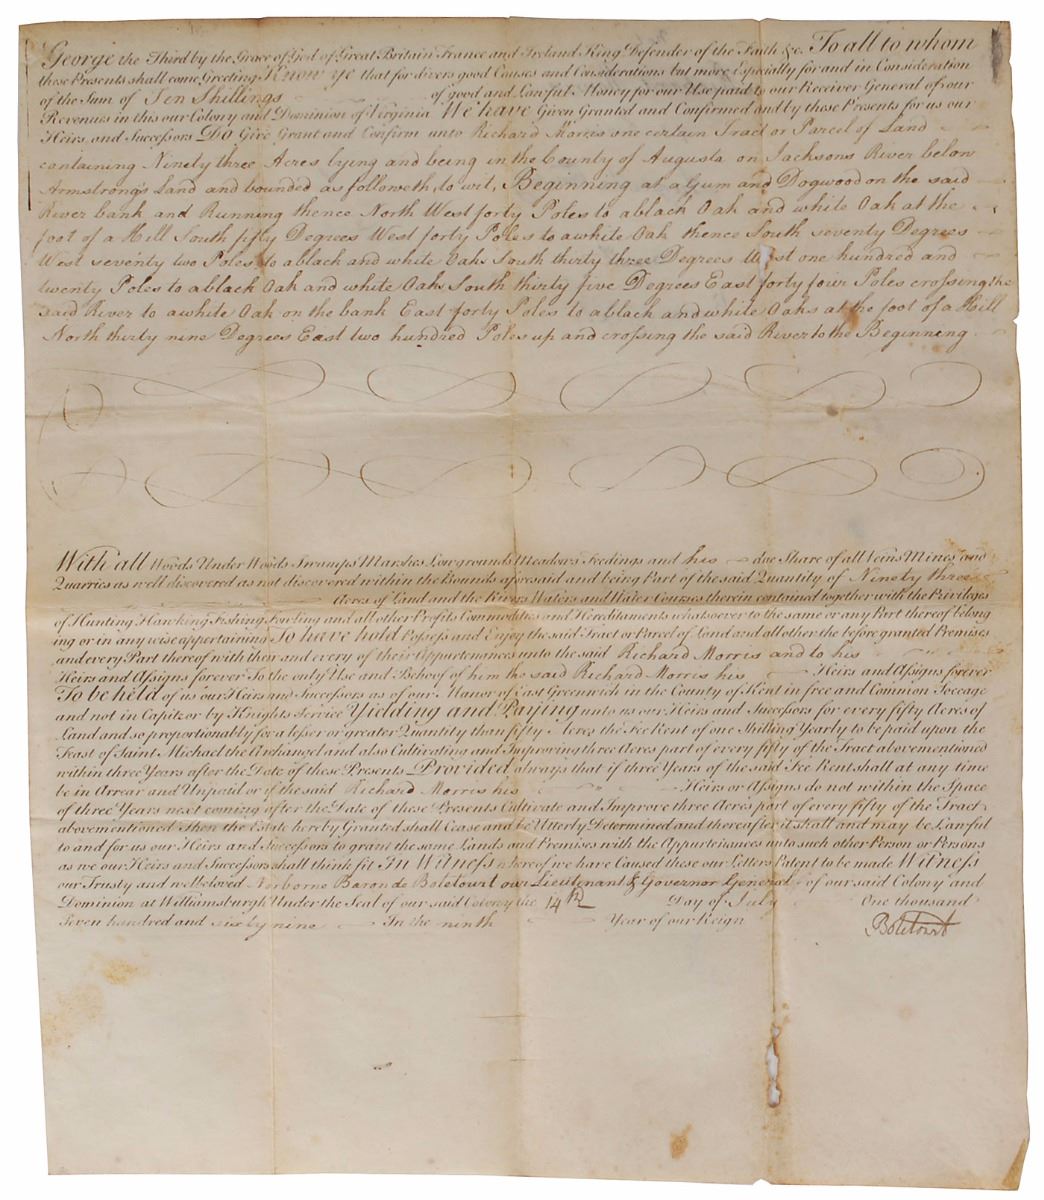 George the Third by the Grace of God of Great Britain France and Ireland King Defender of the Faith &c. To all to whom
these Presents shall come Greeting Know ye that for divers good Causes and Considerations but more Especially for and in Consideration
of the Sum of Ten Shillings of good and Lawful Money for our Use paid to our Receiver General of our
Revenues in this our Colony and Dominion of Virginia We have Given Granted and Confirmed and by these Presents for us our
Heirs and Successors Do Give Grant and Confirm unto Richard Morris one certain Tract or Parcel of Land
containing Ninety three Acres lying and being in the County of Augusta on Jacksons River below
Armstrong's Land and bounded as followeth, to wit, Beginning at a Gum and Dogwood on the said
River bank and Running thence North West forty Poles to a black Oak and white Oak at the
foot of a Hill South fifty Degrees West forty Poles to a white Oak thence South seventy Degrees
West seventy two Poles to a black and white Oaks South thirty three Degrees West one hundred and
twenty Poles to a black Oak and white Oaks South thirty five Degrees East forty four Poles crossing the
said River to a white Oak on the bank East forty Poles to a black and white Oaks at the foot of a Hill
North thirty nine Degrees East two hundred Poles up and crossing the said River to the Beginning
With all Woods Under Woods Swamps Marshes Lowgrounds Meadows Feedings and his due Share of all Veins Mines and
Quarries as well discovered as not discovered within the Bounds aforesaid and being Part of the said Quantity of Ninety three
Acres of Land and the Rivers Waters and Water Courses therein contained together with the Privileges
of Hunting Hawking Fishing Fowling and all other Profits Commodities and Hereditaments whatsoever to the same or any Part thereof belong
ing or in any wise appertaining To have hold Possess and Enjoy the said Tract or Parcel of Land and all other the before granted Premises
and every Part thereof with their and every of their Appurtenances unto the said Richard Morris and to his
Heirs and Assigns forever To the only Use and Behoof of him the said Richard Morris his Heirs and Assigns forever
To be held of us our Heirs and Successors as of our Manor of East Greenwich in the County of Kent in free and Common Soccage
and not in Capite or by Knights Service Yielding and Paying unto us our Heirs and Successors for every fifty Acres of
Land and so proportionably for a lesser or greater Quantity than fifty Acres the Fee Rent of one Shilling Yearly to be paid upon the
Feast of Saint Michael the Archangel and also Cultivating and Improving three Acres part of every fifty of the Tract abovementioned
within three Years after the Date of these Presents Provided always that if three Years of the said Fee Rent shall at any time
be in Arrear and Unpaid or if the said Richard Morris his Heirs or Assigns do not within the Space
of three Years next coming after the Date of these Presents Cultivate and Improve three Acres part of every fifty of the Tract
abovementioned Then the Estate hereby Granted shall Cease and be Utterly Determined and thereafter it shall and may be Lawful
to and for us our Heirs and Successors to grant the same Lands and Premises with the Appurtenances unto such other Person or Persons
as we our Heirs and Successors shall think fit In Witness whereof we have Caused these our Letters Patent to be made Witness
our Trusty and welbeloved Norborne Baron de Botetourt our Lieutenant & Governor General of our said Colony and
Dominion at Williamsburgh Under the Seal of our said Colony the 14th Day of July One thousand
Seven hundred and sixty nine In the ninth Year of our Reign
Botetourt